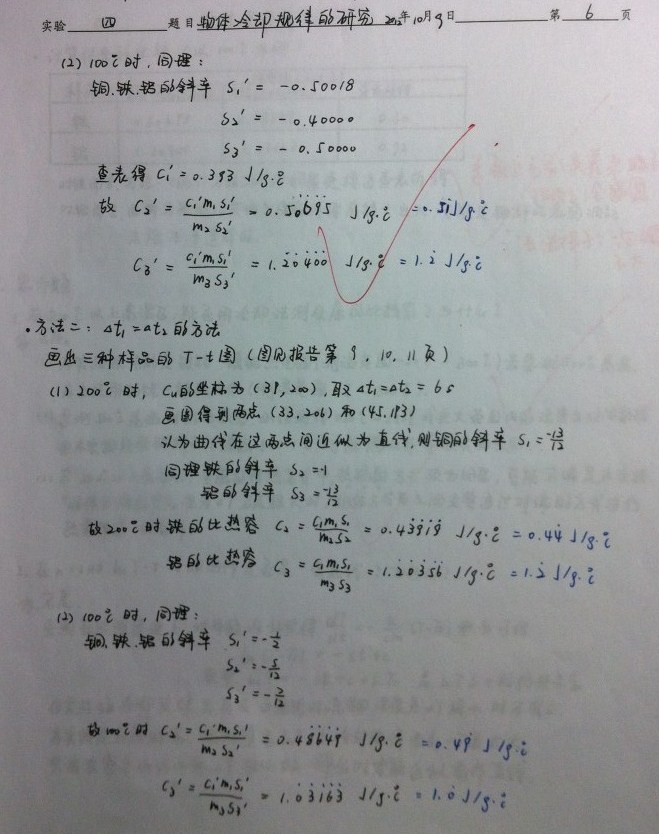 实验 四 题目 物体冷却规律的研究 2012年10月9日 第 6 页
(2) 100℃时,同理:
铜、铁、铝的斜率 S₁' = -0.50018
S₂' = -0.40000
S₃' = -0.50000
查表得 C₁' = 0.393 J/g·℃
故 C₂' = C₁'m₁S₁'/m₂S₂' = 0.50695 J/g·℃ = 0.51 J/g·℃
C₃' = C₁'m₁S₁'/m₃S₃' = 1.20400 J/g·℃ = 1.2 J/g·℃
• 方法二: Δt₁=Δt₂的方法
画出三种样品的 T-t图 (图见报告第 9、10、11页)
(1) 200℃时, Cu的坐标为 (39,200), 取 Δt₁=Δt₂ = 6s
画图得到两点 (33,206) 和 (45,193)
认为曲线在这两点间近似为直线,则铜的斜率 S₁ = -13/12
同理铁的斜率 S₂ = -1
铝的斜率 S₃ = -13/12
故200℃时 铁的比热容 C₂ = C₁m₁S₁/m₂S₂ = 0.43919 J/g·℃ = 0.44 J/g·℃
铝的比热容 C₃ = C₁m₁S₁/m₃S₃ = 1.20356 J/g·℃ = 1.2 J/g·℃
(2) 100℃时,同理:
铜、铁、铝的斜率 S₁' = -1/2
S₂' = -5/12
S₃' = -7/12
故100℃时 C₂' = C₁'m₁S₁'/m₂S₂' = 0.48649 J/g·℃ = 0.49 J/g·℃
C₃' = C₁'m₁S₁'/m₃S₃' = 1.03163 J/g·℃ = 1.0 J/g·℃